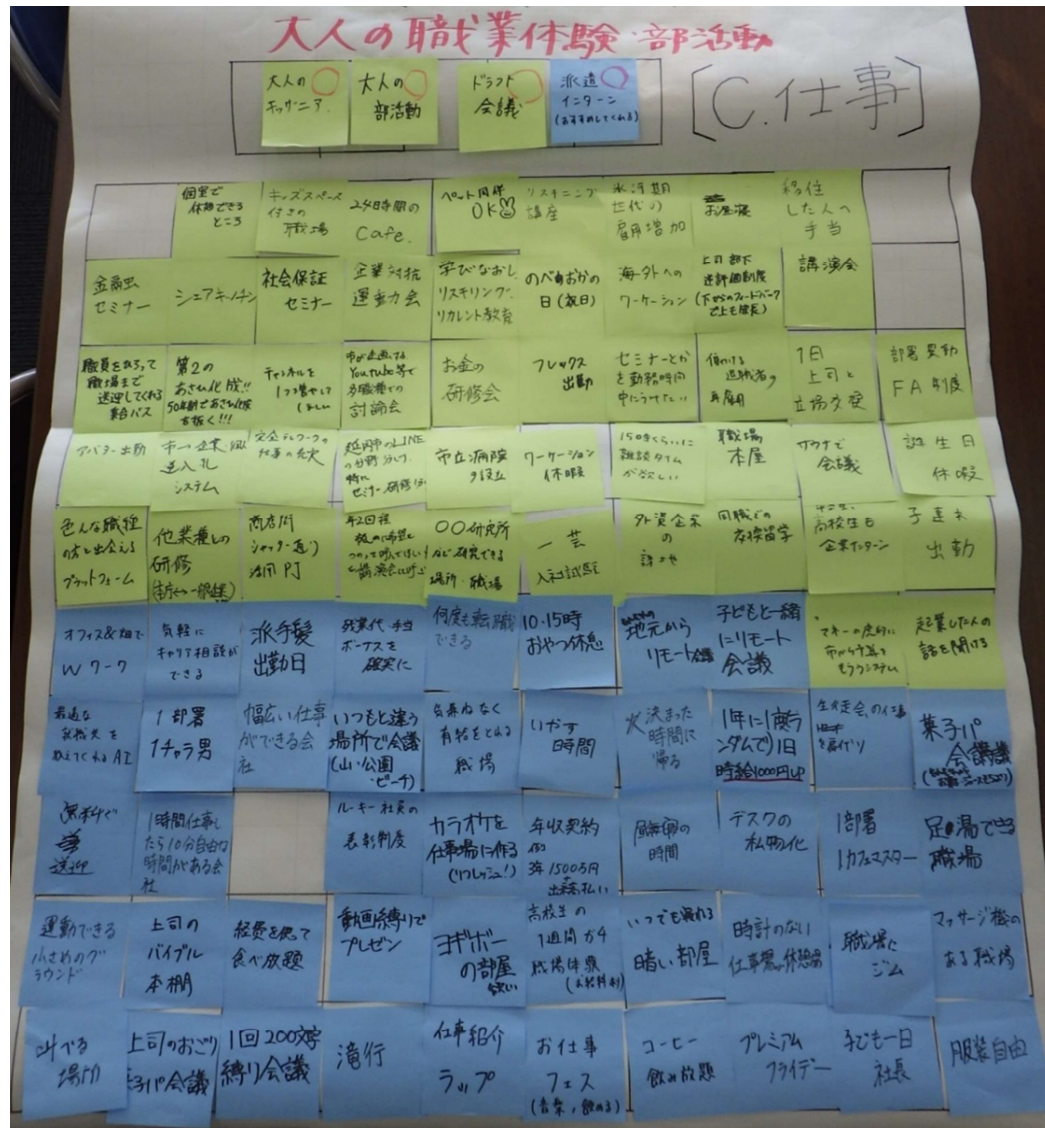 大人の職業体験・部活動
大人の
キッザニア.
大人の
部活動
ドラフト
会議
派遣
インターン
(おすすめしてくれる)
[C.仕事]
個室で
休憩できる
ところ
キッズスペース
付きの
職場
24時間の
Cafe.
ペット同伴
OK
リスキニング
講座
氷河期
世代の
雇用増加
お昼寝
移住
した人の
手当
金融
セミナー
シェアキッチン
社会保証
セミナー
企業対抗
運動会
学びなおし
リスキリング.
リカレント教育
のべおかの
日(祝日)
海外への
ワーケーション
上司部下
逆評価制度
(下からのフィードバック
で上も成長)
講演会
職員をひろって
職場まで
送迎してくれる
乗合バス
第2の
あさひ化成!!
50年計であさひ化成
を抜く!!!
チャンネルを
1つ増やして
ほしい
市が企画する
Youtube等で
討論会
お金の
研修会
フレックス
出勤
セミナーとか
を勤務時間
中にうけたい
退職者の
再雇用
1日
上司と
立場交換
部署異動
FA制度
アバター出勤
市→企業
逆入札
システム
完全テレワークの
仕事の充実
延岡市のLINE
の分野分け
特に
セミナー、研修
市立病院
の設立
ワーケーション
休暇
15時くらいに
雑談タイム
が欲しい
職場
本屋
サウナで
会議
誕生日
休暇
色んな職種
の方と出会える
プラットフォーム
他業種との
研修
商店街
シャッター通り
活用PJ
年2回程
講演会に呼ぶ
〇〇研究所
など研究できる
場所・職場
一芸
入社試験
外資企業
の
誘致
同職での
交換留学
高校生も
企業インターン
子連れ
出勤
オフィス&畑で
Wワーク
気軽に
キャリア相談が
できる
派手髪
出勤日
残業代・手当
ボーナスを
確実に
何度も転職
できる
10・15時
おやつ休憩
地元から
リモート会議
子どもと一緒
にリモート
会議
市から
もらうシステム
起業した人の
話を聞ける
最適な
就職先を
教えてくれるAI
1部署
1チャラ男
幅広い仕事
ができる会
社
いつもと違う
場所で会議
(山・公園
・ビーチ)
気兼ねなく
有給をとれる
職場
いかす
時間
決まった
時間に
帰る
1年に1度(ラ
ンダムで)1日
時給1000円UP
菓子パ
会議
無料で
送迎
1時間仕事し
たら10分自由の
時間がある会
社
ルーキー社員の
表彰制度
カラオケを
仕事場に作る
(リフレッシュ!)
年収契約
例
3年1500万円
出来高払い
の
時間
デスクの
私物化
1部署
1カフェマスター
足湯できる
職場
運動できる
小さめのグ
ラウンド
上司の
バイブル
本棚
経費を使って
食べ放題
動画縛りで
プレゼン
ヨギボー
の部屋
欲しい
高校生の
1週間
職場体験
(お給料有)
いつでも
暗い部屋
時計のない
仕事場
職場に
ジム
マッサージ機の
ある職場
叫べる
場所
上司のおごり
菓子パ会議
1回200文字
縛り会議
滝行
仕事紹介
ラップ
お仕事
フェス
(音楽,飲める)
コーヒー
飲み放題
プレミアム
フライデー
子ども一日
社長
服装自由